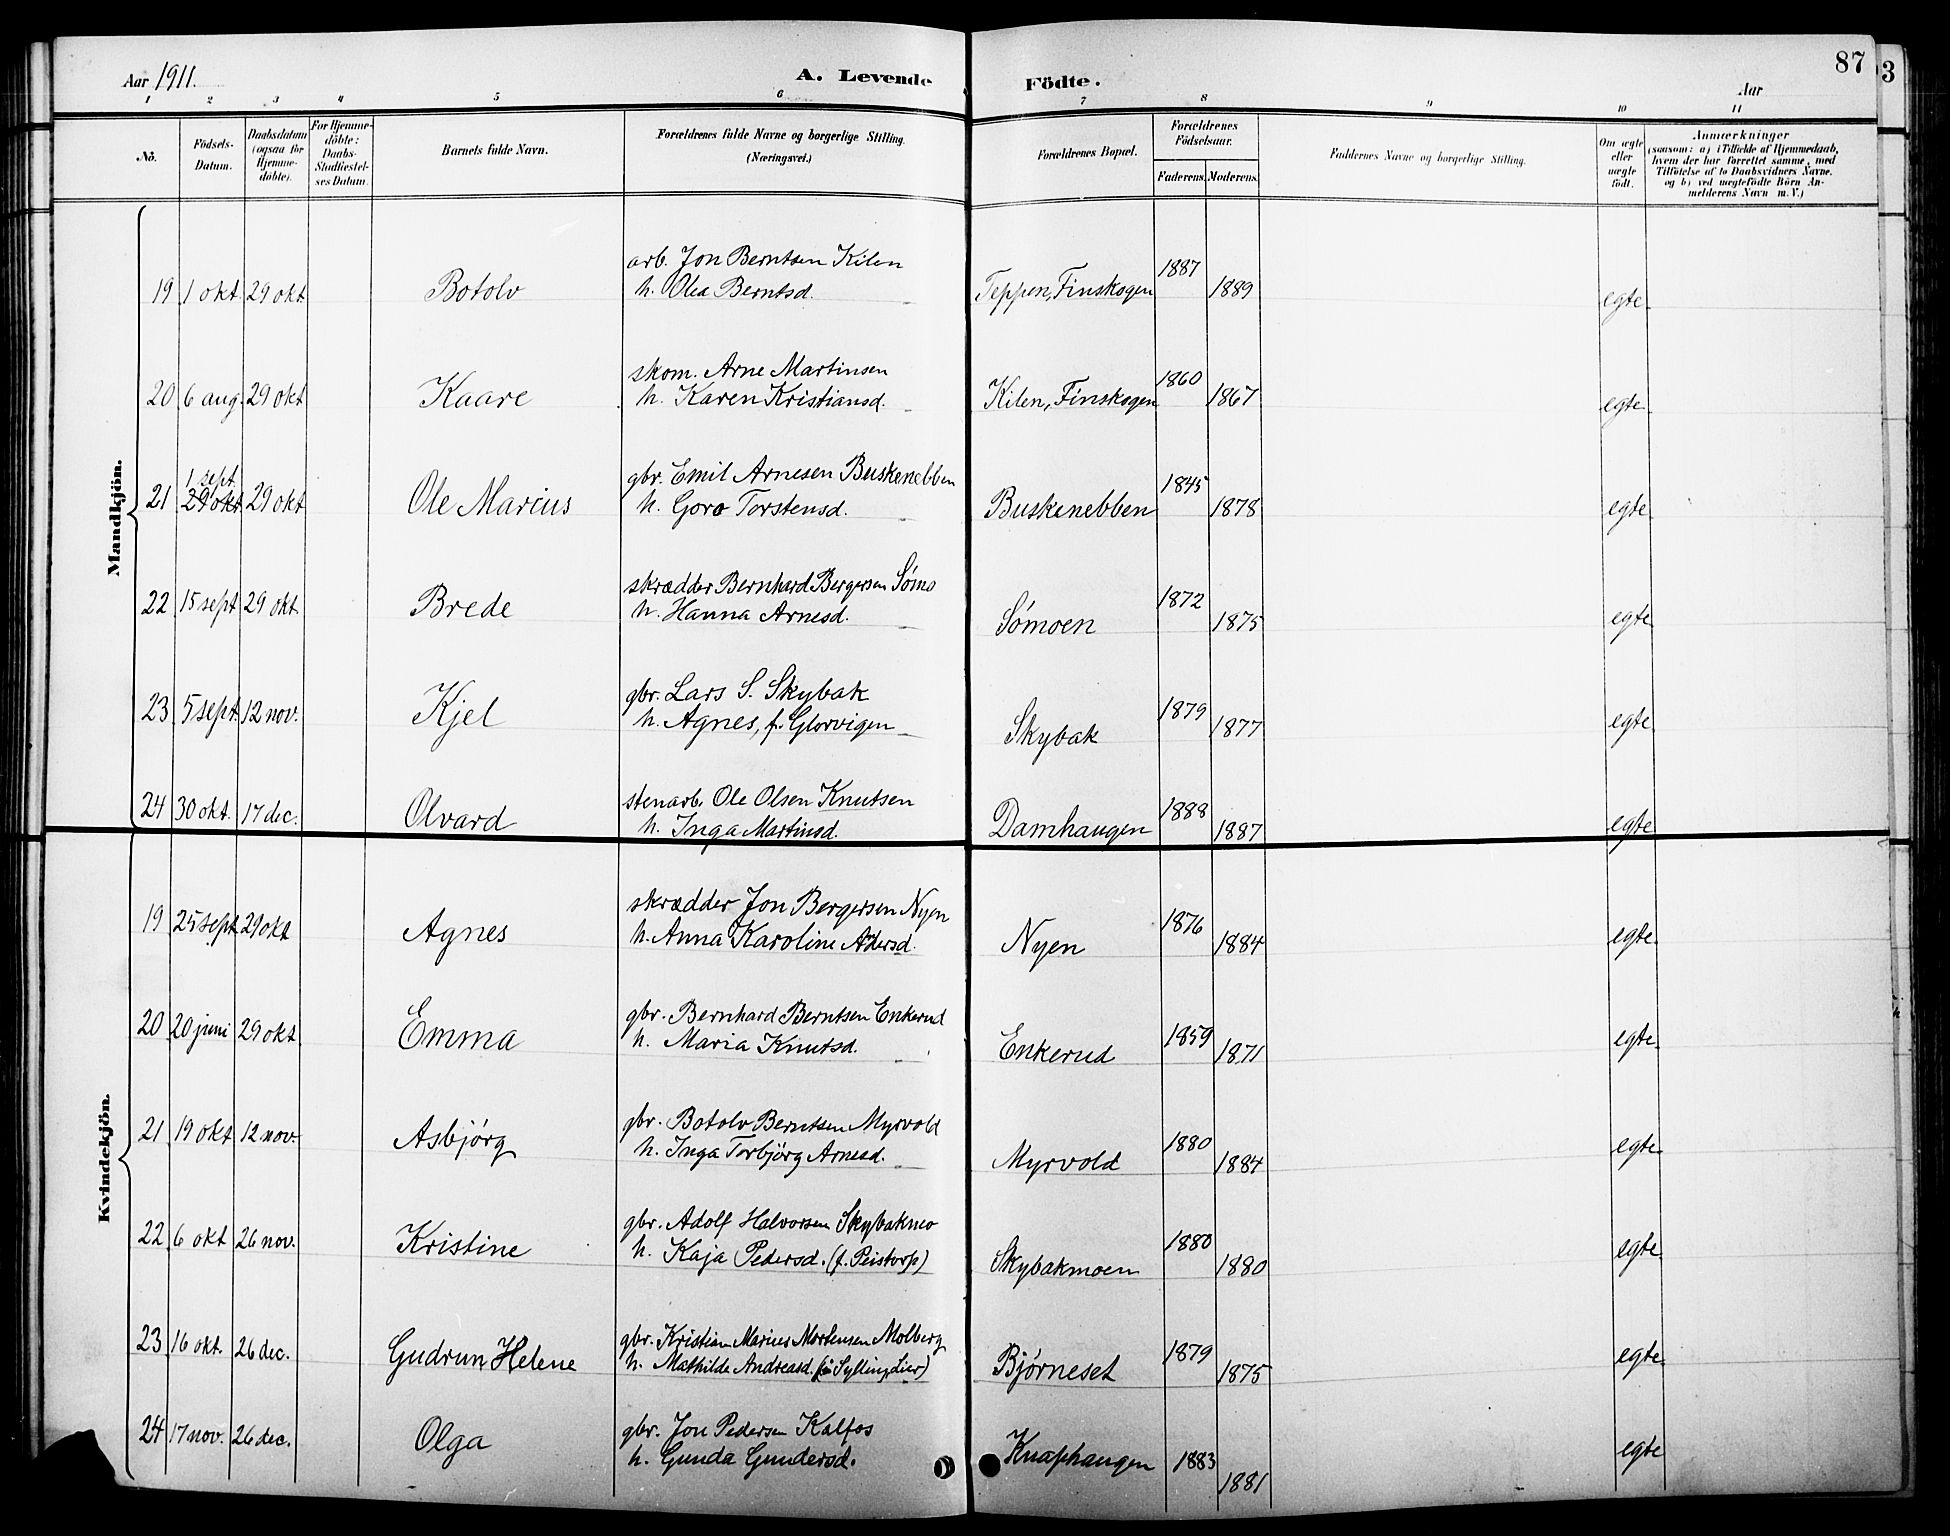 Aar 1911. A. Levende Födte. Aar 87
3
1 2 3 4 5 6 7 8 9 10 11
No. Födsels-Datum. Daabsdatum (ogsaa for Hjemme-döbte). For Hjemme-döbte: Daabs-Stadfæstel-ses Datum. Barnets fulde Navn. Forældrenes fulde Navne og borgerlige Stilling. (Næringsvei.) Forældrenes Bopæl. Forældrenes Födselsaar. Faderens. Moderens. Faddernes Navne og borgerlige Stilling. Om ægte eller uægte födt. Anmærkninger (saasom: a) i Tilfælde af Hjemmedaab, hvem der har forrettet samme, med Tilföielse af to Daabsvidners Navne, og b) ved uægtefödte Börn An-melderens Navn m. V.)
Mandkjön.
arb. Jon Berntsen Kilen 1887
19 1 okt. 29 okt Botolv h. Olea Berntsd. Teppen, Finskogen 1889 egte.
skom. Arne Martinsen 1860
20 6 aug. 29 okt Kaare h. Karen Kristiansd. Kilen, Finskogen 1867 egte.
1 sept. gbr. Emil Arnesen Buskenebben 1845
21 29 okt 29 okt Ole Marius h. Goro Torstensd. Buskenebben 1878 egte
skrædder Bernhard Bergersen Sömo 1872
22 15 sept 29 okt. Brede h. Hanna Arnesd. Sømoen 1875 egte
gbr. Lars S. Skybak 1879
23 5 sept. 12 nov. Kjel h. Agnes, f. Glorvigen Skybak 1877 egte
stenarb. Ole Olsen Knutsen 1888
24 30 okt. 17 dec. Olvard h. Inga Martinsd. Damhaugen 1887 egte
Kvindekjön.
skrædder Jon Bergersen Nyen 1876
19 25 sept 29 okt Agnes h. Anna Karoline Andersd. Nyen 1884 egte.
gbr. Bernhard Berntsen Enkerud 1859
20 20 juni 29 okt. Emma h. Maria Knutsd. Enkerud 1871 egte.
gbr. Botolv Berntsen Myrvold 1880
21 19 okt 12 nov. Asbjörg h. Inga Torbjörg Arnesd. Myrvold 1884 egte.
gbr. Adolf Halvorsen Skybakmo 1880
22 6 okt 26 nov. Kristine h. Kaja Pedersd. (f. Peistorp) Skybakmoen 1880 egte
gbr. Kristian Marius Mortensen Molberg 1879
23 16 okt. 26 dec. Gudrun Helene h. Mathilde Andreasd. (fra Sylling, Lier) Bjørneset 1875 egte
gbr. Jon Pedersen Kalfos
24 17 nov. 26 dec. Olga h. Gunda Gundersd. Knaphaugen 1883 1881 egte